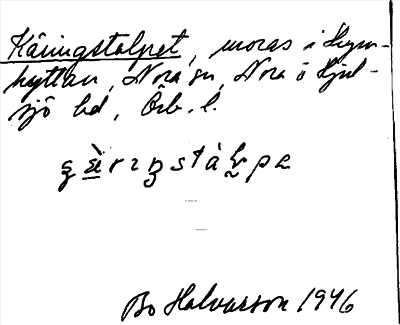 Käringstalpet, moras i Gyn-
hyttan, Nora sn, Nora o Hjul-
sjö bd, Örb. l.
Bo Halvarson 1946